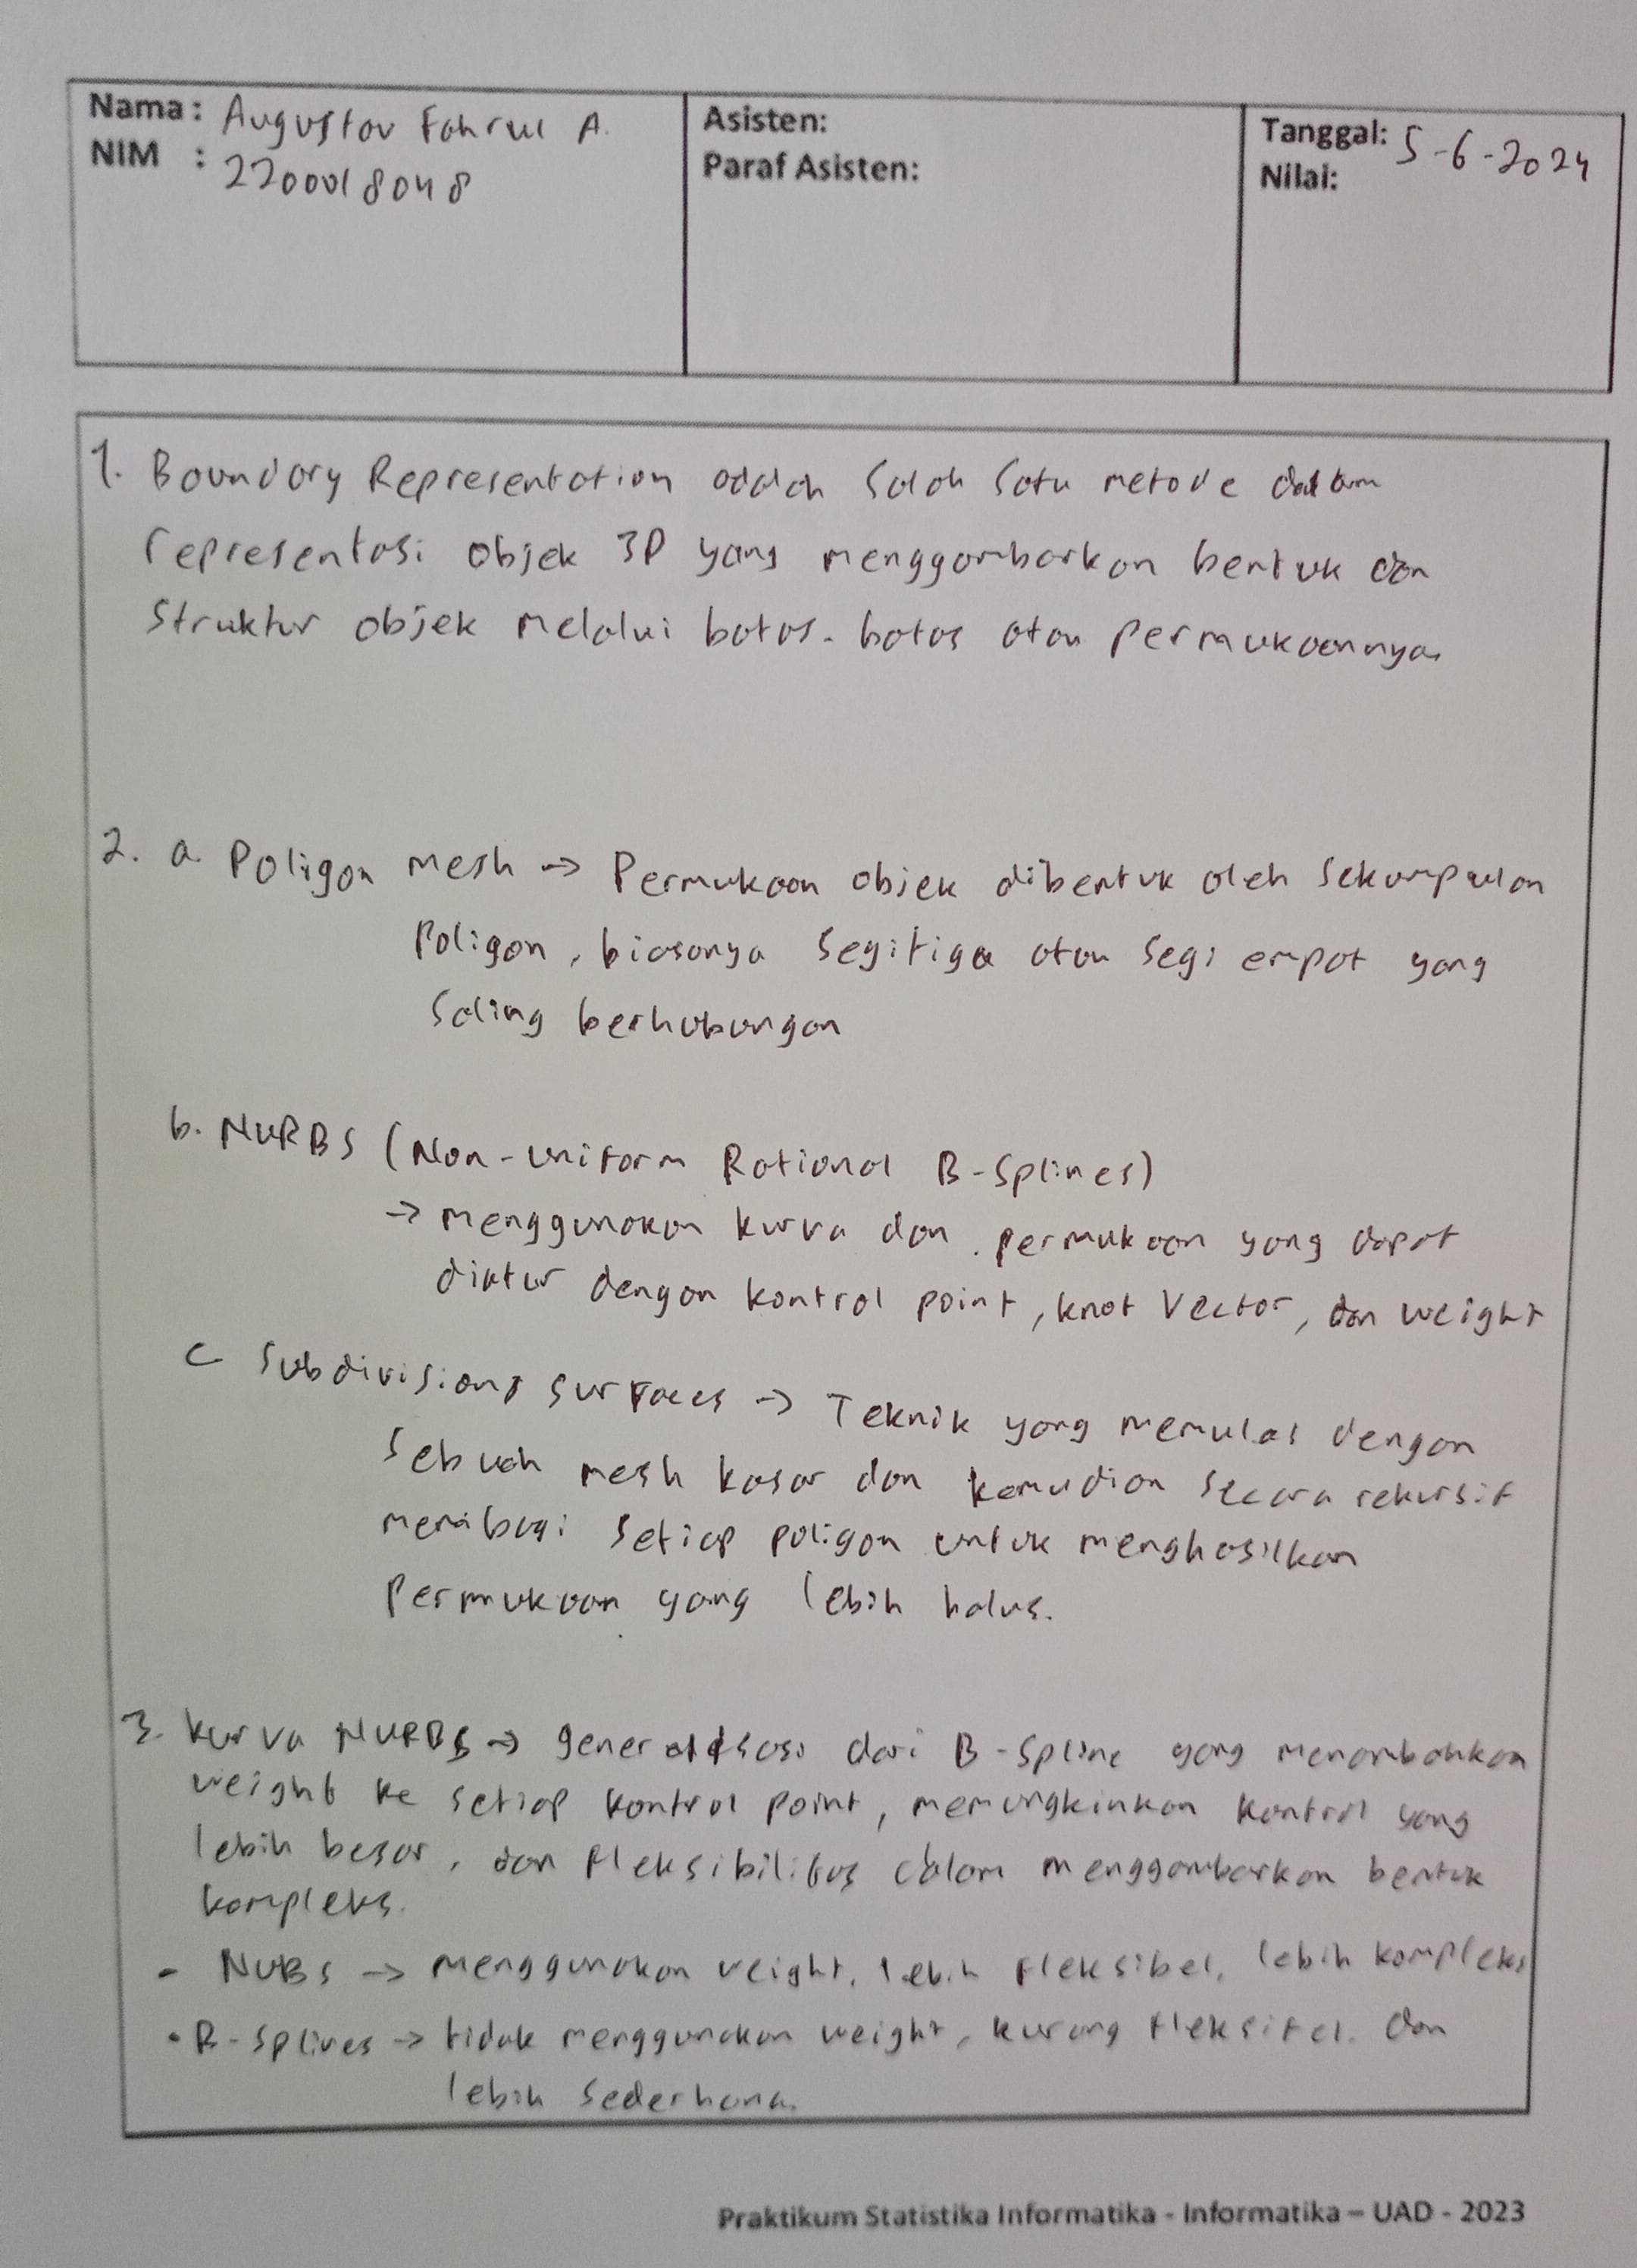 Nama : Augustav Fahrul A.
NIM : 2200018048
Asisten:
Paraf Asisten:
Tanggal: 5-6-2024
Nilai:
1. Boundary Representation adalah salah satu metode dalam
representasi objek 3D yang menggambarkan bentuk dan
struktur objek melalui batas-batas atau permukaannya
2. a. Poligon mesh → Permukaan objek dibentuk oleh sekumpulan
Poligon, biasanya segitiga atau segi empat yang
saling berhubungan
b. NURBS (Non-uniform Rational B-Splines)
→ menggunakan kurva dan permukaan yang dapat
diatur dengan kontrol point, knot vector, dan weight
c Subdivisions surfaces → Teknik yang memulai dengan
sebuah mesh kasar dan kemudian secara rekursif
membagi setiap poligon untuk menghasilkan
Permukaan yang lebih halus.
3. Kurva NURBS → generalisasi dari B-Spline yang menambahkan
weight ke setiap kontrol point, memungkinkan kontrol yang
lebih besar, dan fleksibilitas dalam menggambarkan bentuk
kompleks.
- NUBS → menggunakan weight, lebih fleksibel, lebih kompleks
• B-Splines → tidak menggunakan weight, kurang fleksibel. dan
lebih sederhana.
Praktikum Statistika Informatika - Informatika – UAD - 2023